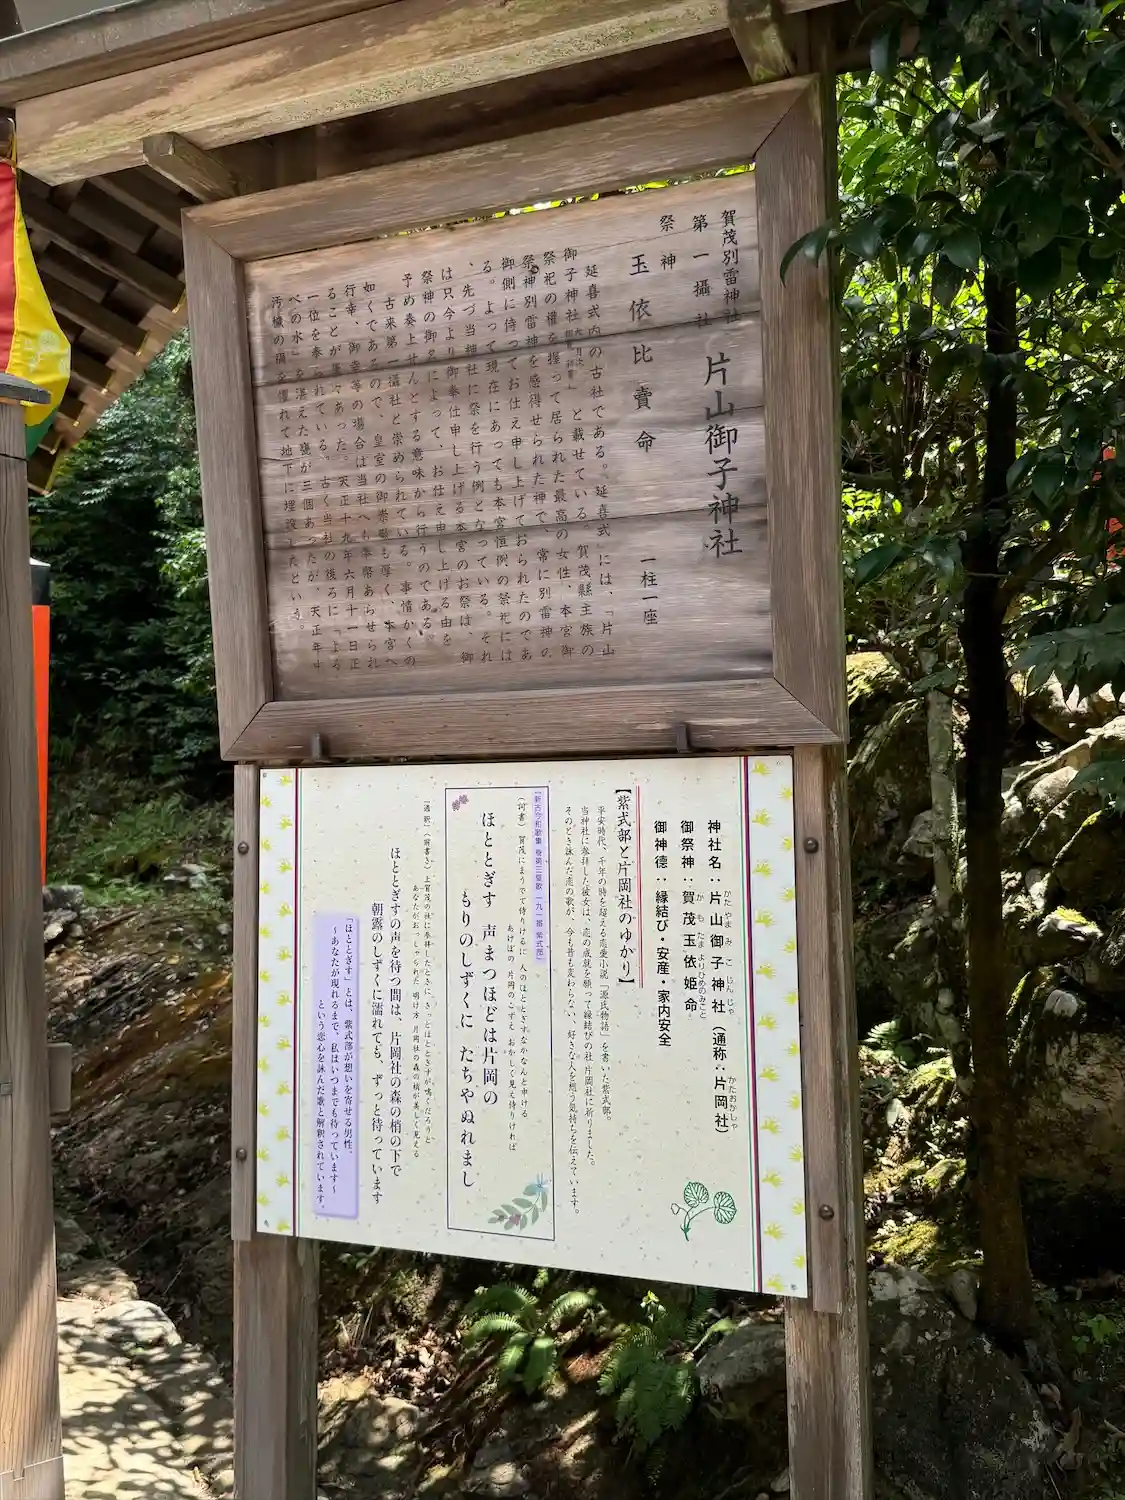 賀茂別雷神社
第一攝社 片山御子神社
祭神
玉依比賣命 一柱一座
延喜式内の古社である。延喜式には、「片山
御子神社 」と載せている。賀茂縣主族の
祭祀の權を握って居られた最高の女性、本宮御
祭神別雷神を感得せられた神で、常に別雷神の
御側に侍ってお仕え申し上げておられたのであ
る。よって現在にあっても本宮恒例の祭祀には
、先づ当神社に祭を行う例となっている。それ
は只今より御奉仕申し上げる本宮のお祭は、御
祭神の御 によって、お仕え申し上げる由を
予め奏上せんとする意味から行うのである。
古来第一攝社と崇められている。事情かくの
如くであるので、皇室の御崇 も厚く、本宮へ
行幸、御幸等の場合は当社へも奉幣あらせられ
ることが屢々あった。天正十九年六月十一日正
一位を奉られている。古く当社の後ろに「よる
べの水」を湛えた甕が三個あったが、天正年中
汚穢の禍を憚れて地下に埋没したという。
神社名：片山御子神社（通称：片岡社）
かた やま み こ じん じゃ
かたおかしゃ
御祭神：賀茂玉依姫命
か も たま よりひめのみこと
御神徳：縁結び・安産・家内安全
【紫式部と片岡社のゆかり】
平安時代、千年の時を超える恋愛小説『源氏物語』を書いた紫式部。
当神社に参拝した彼女は、恋の成就を願って縁結びの社 片岡社に祈りました。
そのとき詠んだ恋の歌が、今も昔も変わらない、好きな人を想う気持ちを伝えています。
『新古今和歌集 巻第三夏歌 一九一番 紫式部』
（詞書）賀茂にまうでて侍りけるに 人のほととぎすなかなんと申ける
あけぼの 片岡のこずえ おかしく見え侍りければ
ほととぎす 声まつほどは片岡の
もりのしずくに たちやぬれまし
『通釈』（前書き）上賀茂の社に参拝したときに さっとほととぎすが鳴くだろうと
あなたがおっしゃられた 明け方 片岡社の森の梢が美しく見える
ほととぎすの声を待つ間は、片岡社の森の梢の下で
朝露のしずくに濡れても、ずっと待っています
「ほととぎす」とは、紫式部が想いを寄せる男性。
～あなたが現れるまで、私はいつまでも待っています～
という恋心を詠んだ歌と解釈されています。